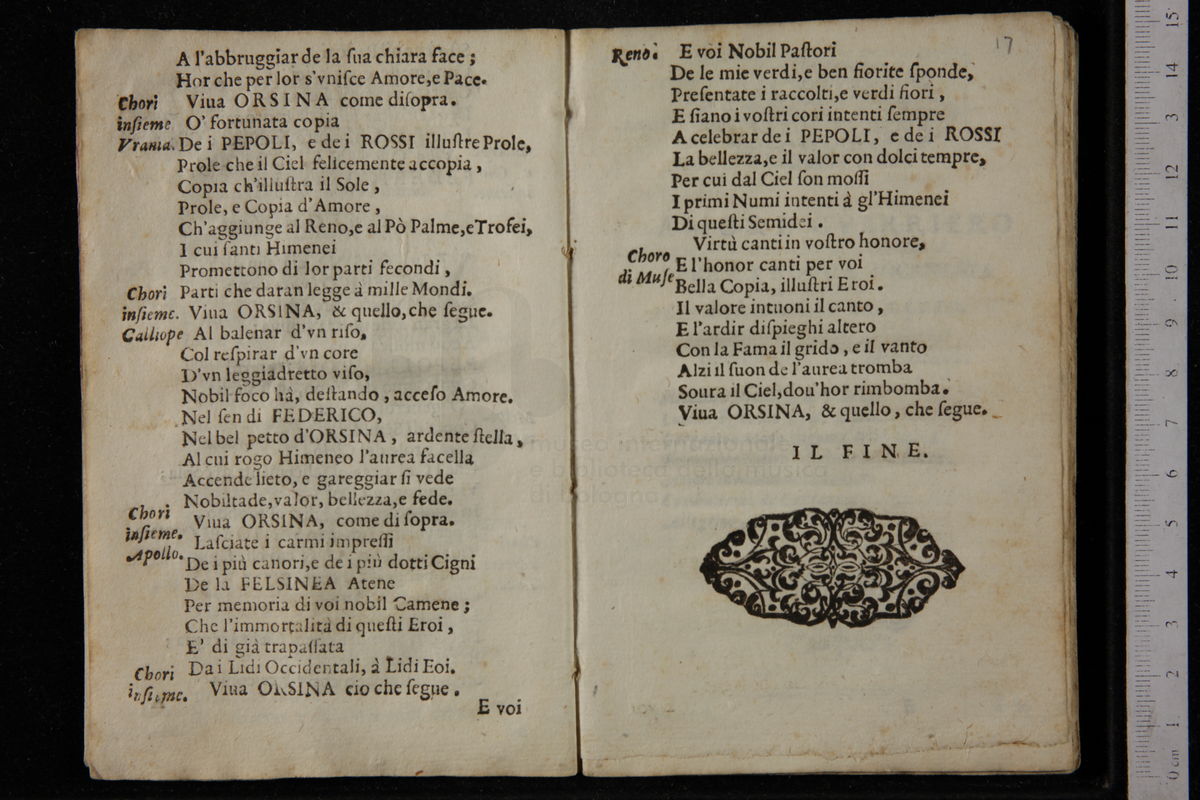 A l'abbruggiar de la ſua chiara face ;
Hor che per lor s'vniſce Amore,e Pace.
Chori Viua ORSINA come diſopra.
inſieme O' fortunata copia
Vrania. De i PEPOLI, e de i ROSSI illuſtre Prole,
Prole che il Ciel felicemente accopia ,
Copia ch'illuſtra il Sole ,
Prole, e Copia d'Amore ,
Ch'aggiunge al Reno,e al Pò Palme,e Trofei,
I cui ſanti Himenei
Promettono di lor parti fecondi ,
Chori Parti che daran legge à mille Mondi.
inſieme. Viua ORSINA, & quello, che ſegue.
Calliope Al balenar d'vn riſo,
Col reſpirar d'vn core
D'vn leggiadretto viſo,
Nobil foco hà, deſtando , acceſo Amore.
Nel ſen di FEDERICO,
Nel bel petto d'ORSINA , ardente ſtella,
Al cui rogo Himeneo l'aurea facella
Accende lieto, e gareggiar ſi vede
Nobiltade,valor, bellezza,e fede.
Chori
inſieme. Viua ORSINA, come di ſopra.
Apollo. Laſciate i carmi impreſſi
De i più canori,e de i più dotti Cigni
De la FELSINEA Atene
Per memoria di voi nobil Camene ;
Che l'immortalità di queſti Eroi ,
E' di già trapaſſata
Da i Lidi Occidentali, à Lidi Eoi.
Chori
inſieme. Viua ORSINA cio che ſegue .
E voi
17
Reno. E voi Nobil Paſtori
De le mie verdi,e ben fiorite ſponde,
Preſentate i raccolti,e verdi fiori ,
E ſiano i voſtri cori intenti ſempre
A celebrar de i PEPOLI, e de i ROSSI
La bellezza,e il valor con dolci tempre,
Per cui dal Ciel ſon moſſi
I primi Numi intenti à gl'Himenei
Di queſti Semidei .
Virtù canti in voſtro honore,
Choro
di Muſe E l'honor canti per voi
Bella Copia, illuſtri Eroi.
Il valore intuoni il canto ,
E l'ardir diſpieghi altero
Con la Fama il grido , e il vanto
Alzi il ſuon de l'aurea tromba
Soura il Ciel,dou'hor rimbomba.
Viua ORSINA, & quello , che ſegue.
IL FINE.
museo internazionale
e biblioteca della musica
di bologna
0 cm 1 2 3 4 5 6 7 8 9 10 11 12 13 14 15